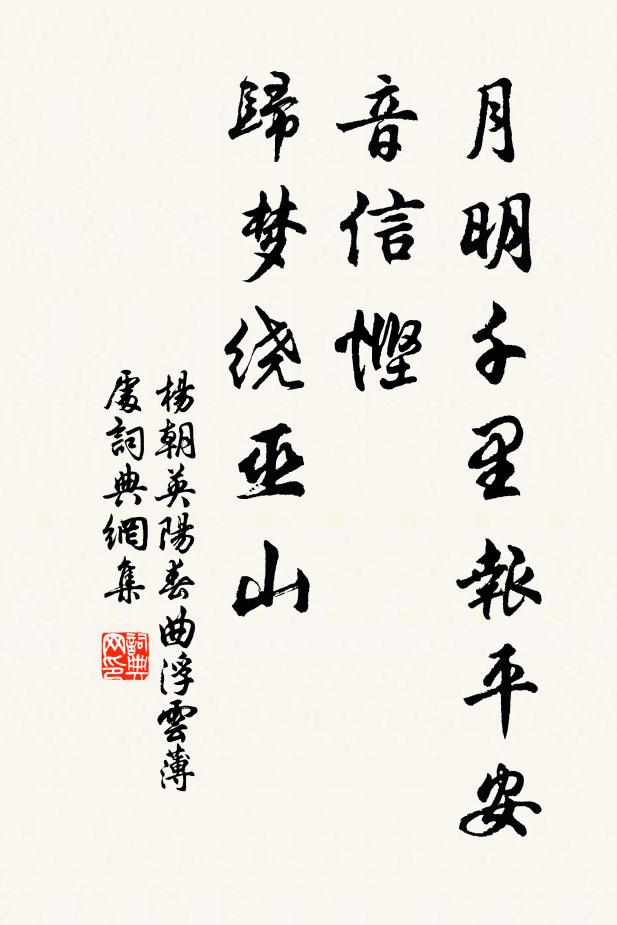 月明千里報平安
音信慳
歸梦绕巫山
楊朝英陽春曲浮雲薄
處詞典網集
詞典网印